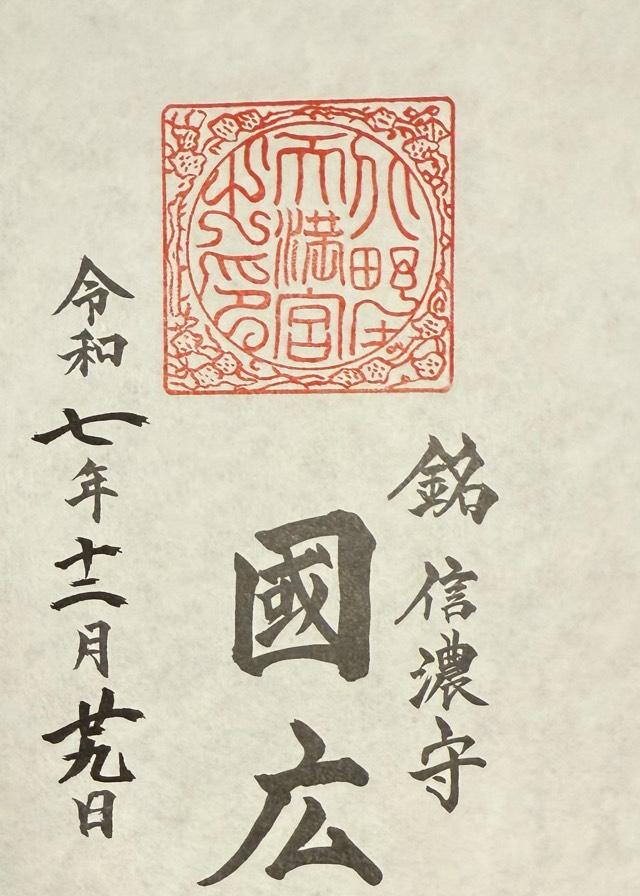 北野
天満宮
之印
銘 信濃守
國広
令和七年十二月廿九日